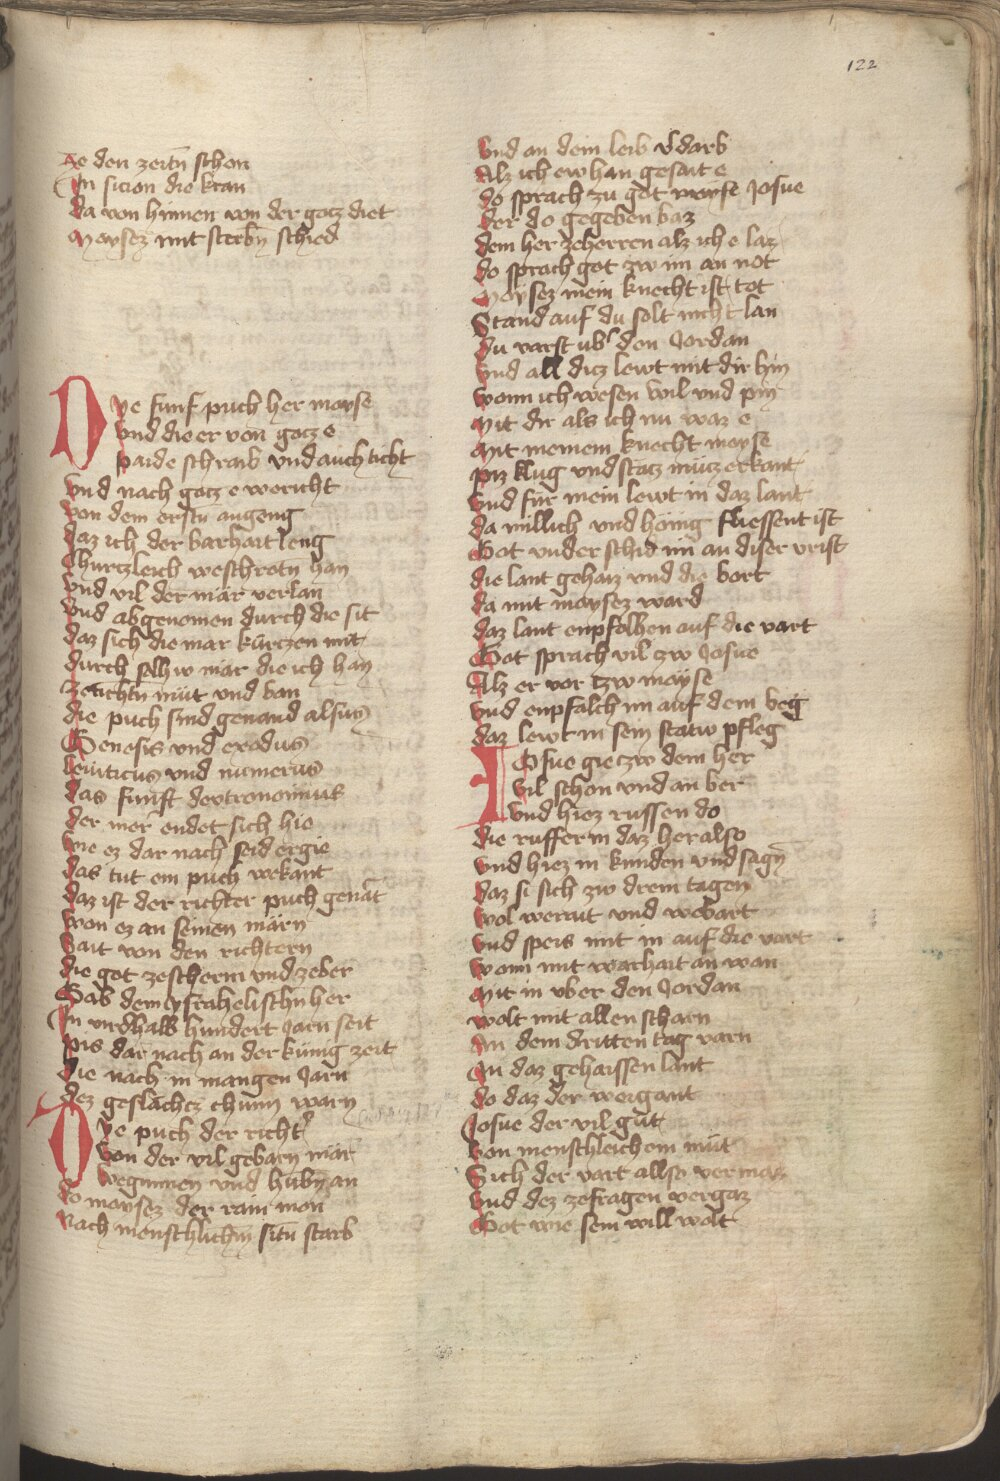 122
Ze den zeitn̄ schon
In sicion die kran
da von hinnen von der gotz diet
Moysez mit sterbn̄ schied
Dye funf puch her moyse
vnd die er von gotz e
paide schraib vnd auch ticht
vnd nach gotz e wericht
von dem erstn̄ angeng
daz ich der warhait leng
Churtzleich weschrotn han
vnd vil der mär verlan
vnd abgenomen durch die sit
daz sich die mar kürtzen mit
durch selh w mär die ich han
zetichtn müt vnd ban
die puch sind genand alsus
Genesis vnd exodus
leuiticus vnd numerus
das funft devtronomius
der mer endet sich hie
wie ez dar nach seid ergie
das tut ein puch wekant
daz ist der richter puch genāt
won ez an seinen märn
Sait von den richtern
die got zescherm vnd zeber
Gab dem ysrahelischn her
In virdhalb hundert Jarn seit
pis dar nach an der künig zeit
die nach in mangen Jarn
dez geslächcz chunn warn
Dye puch der richt'
von der vil gebarn mär
weginnen vnd hubn̄ an
do moysez der rain mon
nach menschlichm̄ sitn̄ starb
vnd an dem leib v'darb
Alz ich ew han gesait e
do sprach zu got moyse Josue
der do gegeben baz
dem her zeherren alz ich e laz
do sprach got zw im an not
Moysez mein knecht ist tot
Stand auf du solt nicht lan
du varst vb' den Jordan
vnd all dicz lewt mit dir hin
wonn ich wesen wil vnd pin
Mit dir als ich im waz e
Mit meinem knecht moyse
piz klug vnd statz mütz erkant
vnd für mein lewt in daz lant
da millich vnd hönig fliessent ist
Got vnder schid im an diser vrist
die lant gehaiz vnd die bort
da mit moysez ward
daz lant enpfolhen auf die vart
Got sprach vil zw Josue
Alz er vor tzw moyse
vnd enpfalch im auf dem beg
daz lewt in sein statw pfleg
Josue gie zw dem her
vil schon vnd an ber
vnd hiez ruffen do
die ruffer in daz her also
vnd hiez in kunden vnd sagn̄
daz si sich zw drein tagen
wol werait vnd webart
vnd speis mit in auf die vart
wonn mit warhait an wan
Mit in vber den Jordan
wolt mit allen scharn
An dem dritten tag varn
In daz gehaissen lant
do daz der weigant
Josue der vil gut
von menschleichem müt
Sich der vart allso vermaz
vnd dez zefragen vergaz
Got wie sein will wolt